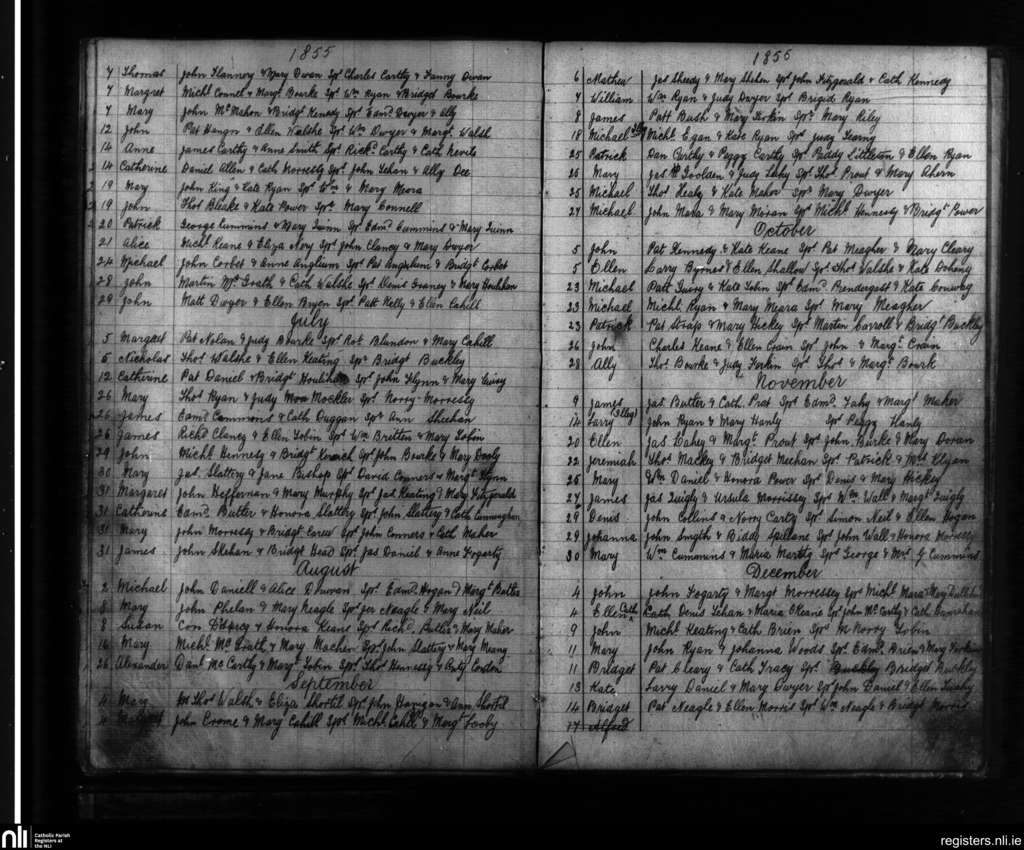 1855
7 Thomas John Flannery & Mary Dwan Spr Charles Carthy & Fanny Dwan
7 Margret Michl Connel & Margt Bourke Spr Wm Ryan & Bridget Bourke
7 Mary John McMahon & Bridgt Kennedy Spr Edmd Dwyer & Ally
12 John Pat Hangon & Ellen Walshe Spr Wm Dwyer & Margt Walsh
14 Anne James Carthy & Anne Smith Spr Richd Carthy & Cath
14 Catherine Daniel Allen & Cath Morressy Spr John Lehan & Ally Dee
19 Mary John King & Kate Ryan Spr Wm & Mary Meara
19 John Thos Blake & Kate Power Spr Mary Connell
20 Patrick George Cummins & Mary Quinn Spr Edmd Cummins & Mary Quinn
21 Alice Michl Keane & Eliza Spr John Clancy & Mary Dwyer
24 Michael John Corbet & Anne Anglium Spr Pat Anglium & Bridgt Corbet
28 John Martin McGrath & Cath Walshe Spr Denis Franey & Mary Houlihan
29 John Matt Dwyer & Ellen Bryen Spr Patt Kelly & Ellen Cahill
July
5 Margret Pat Nolan & Judy Bourke Spr Robt Blandon & Mary Cahill
5 Nicholas Thos Walshe & Ellen Keating Spr Bridgt Buckley
12 Catherine Pat Daniel & Bridgt Houlihan Spr John Flynn & Mary
26 Mary Thos Ryan & Judy Mockler Spr Norry Morressy
26 James Edmd Cammons & Cath Duggan Spr Ann Sheehan
26 James Richd Clancy & Ellen Tobin Spr Wm Britten & Mary Tobin
29 John Michl Hennesy & Bridgt Spr John Bourke & Mary Dooly
30 Mary Jas Slattery & Jane Bishop Spr David Connors & Margt Flynn
31 Margaret John Heffernan & Mary Murphy Spr Jas Keating & Mary Fitzgerald
31 Catherine Edmd Butter & Honora Slattery Spr John Slattery & Cath Cunningham
31 Mary John Morressy & Bridgt Carew Spr John Connors & Cath Maher
31 James John Shehan & Bridget Head Spr Jas Daniel & Anne Fogarty
August
2 Michael John Daniell & Alice Spr Edmd Hogan & Margt Butler
8 Mary John Phelan & Mary Neagle Spr Jer Neagle & Mary Neil
8 Susan Con D'Arcy & Honora Keane Spr Richd Butler & Mary Maher
16 Mary Michl McGrath & Mary Machen Spr John Slattery & Mary Meany
26 Alexander Danl McCarthy & Margt Tobin Spr Thos Hennessy & Anty Condon
September
4 Mary Thos Walsh & Eliza Shortil Spr John Hangon & Ann Shortil
4 John Croome & Mary Cahill Spr Michl Cahill & Margt Looby
1855
6 Mathew Jas Sheedy & Mary Shelen Spr John Fitzgerald & Cath Kennedy
7 William Wm Ryan & Judy Dwyer Spr Brigid Ryan
8 James Patt Bush & Mary Forkin Spr Mary Kiley
18 Michael Michl Egan & Kate Ryan Spr Judy
25 Patrick Dan Carthy & Peggy Carthy Spr Paddy Littleton & Ellen Ryan
25 Mary Jas McGoolden & Judy Lahy Spr Thos Prout & Mary Ahern
25 Michael Thos Healy & Kate Maher Spr Mary Dwyer
27 Michael John Mara & Mary Moran Spr Michl Hennesty & Bridgt Power
October
5 John Pat Kennedy & Kate Keane Spr Pat Meagher & Mary Cleary
5 Ellen Larry Byrnes & Ellen Shallow Spr Thos Walshe & Kate Doheny
23 Michael Patt Guiry & Kate Tobin Spr Edmd Pendergest & Kate Conway
23 Michael Michl Ryan & Mary Meara Spr Mary Meagher
23 Patrick Pat Strap & Mary Hickey Spr Martin Carroll & Bridgt Buckley
26 John Charles Keane & Ellen Crain Spr John & Margt Crain
28 Ally Thos Bourke & Judy Forkin Spr Thos & Margt Bourk
November
9 James Jas Butter & Cath Prat Spr Edmd Fahy & Margt Maher
14 Larry (Illeg) John Ryan & Mary Hanly Spr Peggy Hanly
20 Ellen Jas Lahey & Margt Prout Spr John Burke & Mary Doran
22 Jeremiah Thos Mackey & Bridget Meehan Spr Patrick & Mrs
25 Mary Wm Daniel & Honora Power Spr Denis & Mary Hickey
27 James Jas Quigly & Ursula Morrissey Spr Wm Wall & Margt Quigly
29 Denis John Collins & Norry Carty Spr Simon Neil & Ellen Hogan
29 Johanna John Smyth & Biddy Spillane Spr John Wall & Honora Morressy
30 Mary Wm Cummins & Maria Spr George & Mrs G Cummins
December
4 John John Fogarty & Margt Morressey Spr Michl Mara & Mary
4 Ellen Cath Cath Denis Lehan & Maria O Keane Spr John McCarthy & Cath
9 John Michl Keating & Cath Brien Spr M Norry Tobin
11 Mary John Ryan & Johanna Woods Spr Edmd Brien & Mary
11 Bridget Pat Cleary & Cath Tracy Spr Buckley Bridget Buckley
13 Kate Larry Daniel & Mary Dwyer Spr John Daniel & Ellen
14 Bridget Pat Neagle & Ellen Morris Spr Wm Neagle & Bridgt Morris
17 Alfred
nli Catholic Parish
Registers at
the NLI
registers.nli.ie